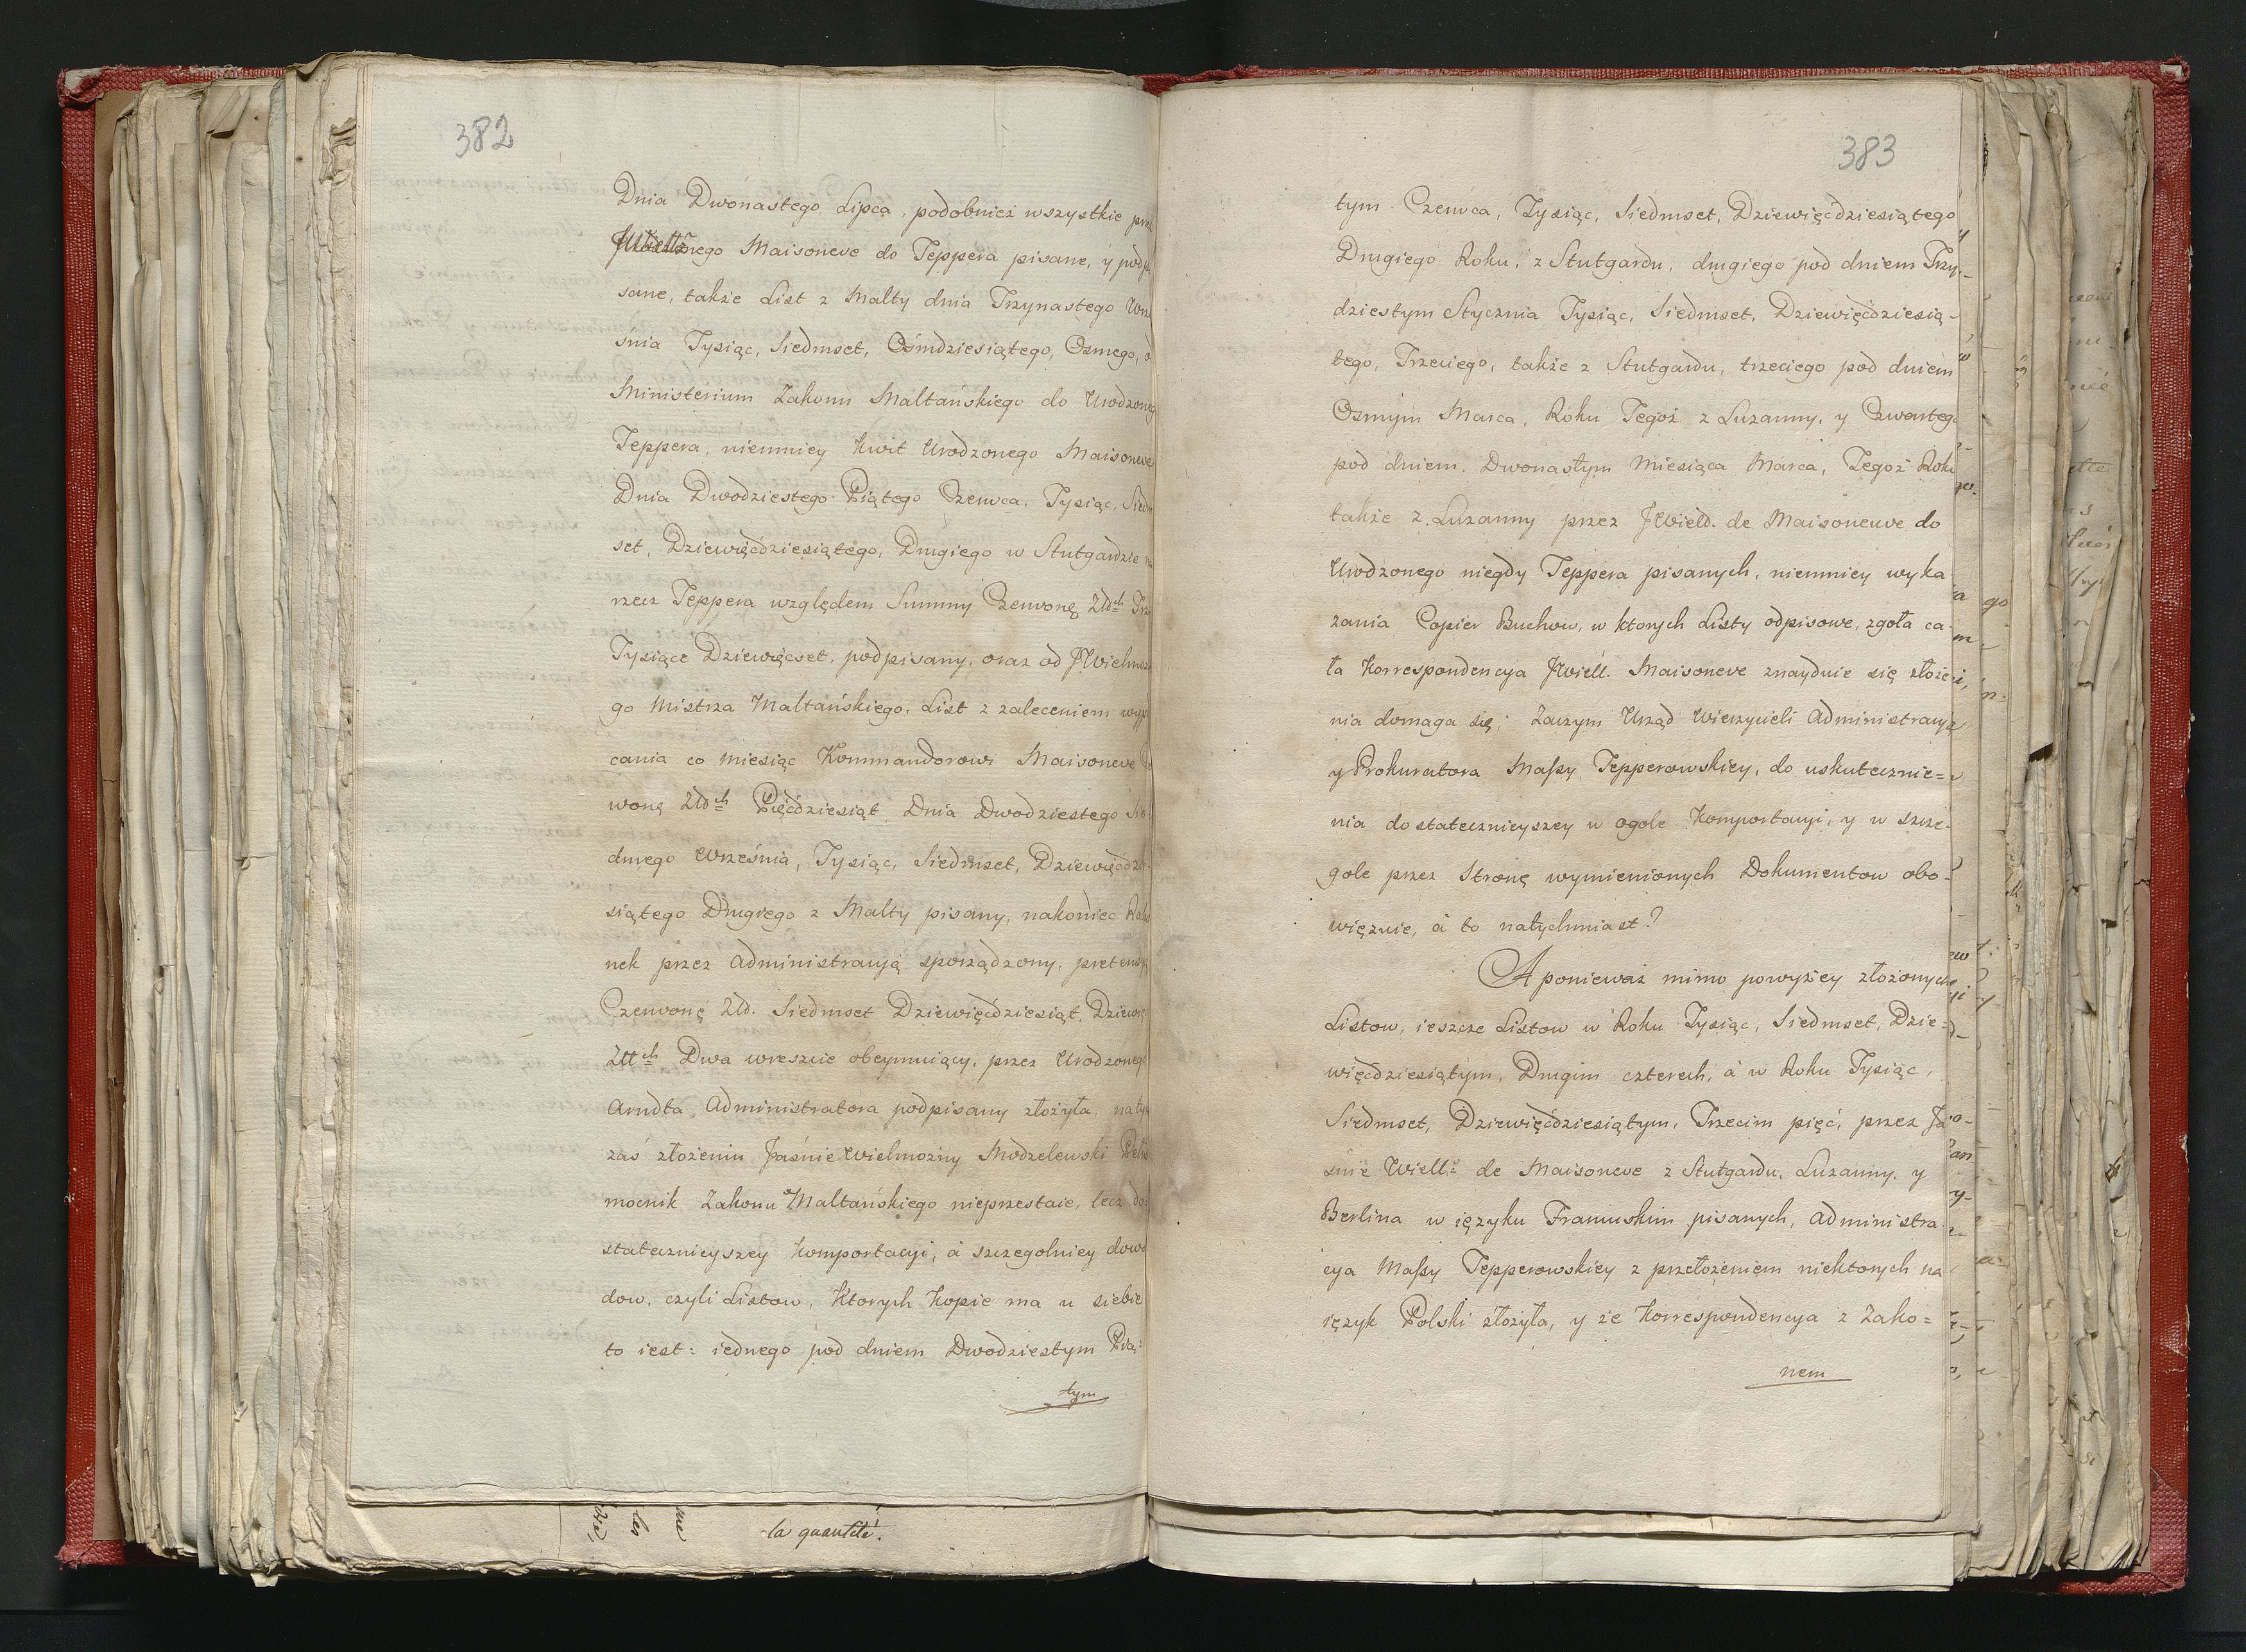 382
Dnia Dwónastego Lipca, podobnież wszystkie prze
JWiellżnego Maisoneve do Teppera pisane, y podpi
sane, także List z Malty dnia Trzynastego Wrz
śnia Tysiąc, Siedmset, Ośmdziesiątego, Osmego, o
Ministerium Zakonu Maltańskiego do Urodzoneg
Teppera, niemniey Kwit Urodzonego Maisoneve
Dnia Dwodziestego Piątego Czerwca, Tysiąc, Siedm
set, Dziewięćdziesiątego, Drugiego w Stutgardzie na
rzecz Teppera względem Summy Czerwonę Złdch Trzy
Tysiące Dziewięcset, podpisany, oraz od JWielmoż
go Mistrza Maltańskiego, List z zaleceniem wypł
cania co miesiąc Kommandorowi Maisoneve
wonę Złdch Pięćdziesiąt Dnia Dwodziestego Sió
dmego Września, Tysiąc, Siedmset, Dziewięćdzie-
siątego Drugiego z Malty pisany, nakoniec Rachu
nek przez Administracyją sporządzony, pretensyą
Czerwonę Złd. Siedmset Dziewięćdziesiąt, Dziewię
Zttch Dwa wreszcie obeymuiący, przez Urodzonego
Arndta Administratora podpisany złożyła, natym
zaś złożeniu Jaśnie Wielmożny Modzelewski Pełno
mocnik Zakonu Maltańskiego nieprzestaie, lecz do
statecznieyszey Komportacyi, á szczegolniey dowo
dow, czyli Listow, Ktorych Kopie ma u siebie
to iest: iednego pod dniem Dwodziestym Pią-
tym
la quantité.
383
tym Czerwca, Tysiąc, Siedmset, Dziewięćdziesiątego
Drugiego Roku, z Stutgardu, drugiego pod dniem Trzy-
dziestym Stycznia Tysiąc, Siedmset, Dziewięćdziesią-
tego, Trzeciego, także z Stutgardu, trzeciego pod dniem
Osmym Marca, Roku Tegoż z Luzanny, y Czwartego
pod dniem Dwonastym Miesiąca Marca, Tegoż Roku
także z Luzanny przez JWield. de Maisoneuve do
Urodzonego niegdy Teppera pisanych, niemniey wyka
zania Copier Buchow, w ktorych Listy odpisowe, zgoła ca-
ła Korrespondencya JWiell. Maisoneve znayduie się złoże
nia domaga się; Zaczym Urząd Wierzycieli Administracyą
y Prokuratora Massy Tepperowskiey, do uskutecznie=
nia dostatecznieyszey w ogole Komportacyi, y w szcze-
gole przez Stronę wymienionych Dokumentow obo-
więzuie, á to natychmiast?
A ponieważ mimo powyżey złożonych
Listow, ieszcze Listow w Roku Tysiąc, Siedmset, Dzie=
więćdziesiątym, Drugim czterech, á w Roku Tysiąc,
Siedmset, Dziewięćdziesiątym, Trzecim pięć, przez Ja
śnie Wiello de Maisoneve z Stutgardu, Luzanny, y
Berlina w ięzyku Francuskim pisanych, Administra
cya Massy Tepperowskiey z przełożeniem niektorych na
ięzyk Polski złożyła, y że Korrespondencya z Zako=
nem